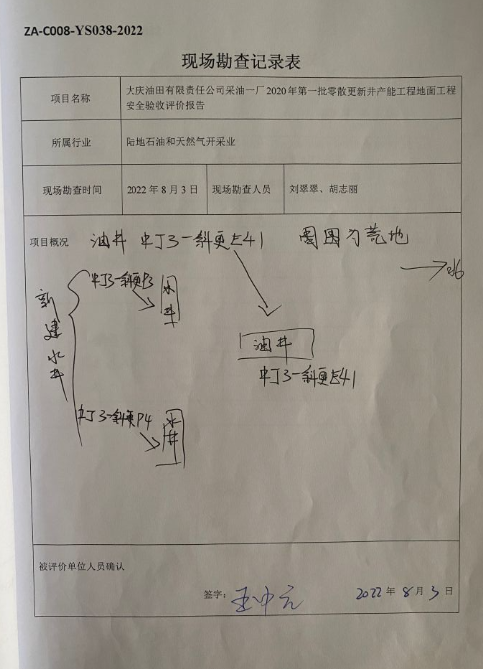 ZA-C008-YS038-2022
现场勘查记录表
项目名称
大庆油田有限责任公司采油一厂2020年第一批零散更新井产能工程地面工程
安全验收评价报告
所属行业
陆地石油和天然气开采业
现场勘查时间
2022年8月3日
现场勘查人员
刘翠翠、胡志丽
项目概况
油井 中丁3-斜更E41 周围为荒地
北
新建水井
中丁3-斜更P3
水井
油井
中丁3-斜更E41
中丁3-斜更P4
水井
被评价单位人员确认
签字：
2022年8月3日